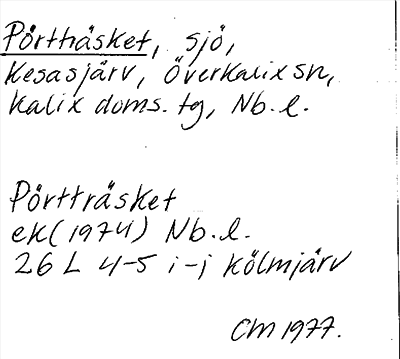 Pörtträsket, sjö,
Kesasjärv, Överkalix sn,
Kalix doms. tg, Nb. l.
Pörtträsket
ek (1974) Nb. l.
26 L 4-5 i-j Kölmjärv
CM 1977.